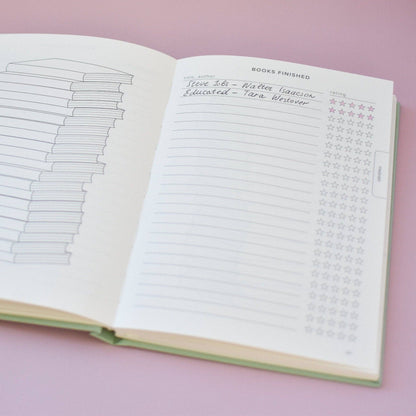 BOOKS FINISHED
title, author rating
Steve Jobs - Walter Isaacson
Educated - Tara Westover